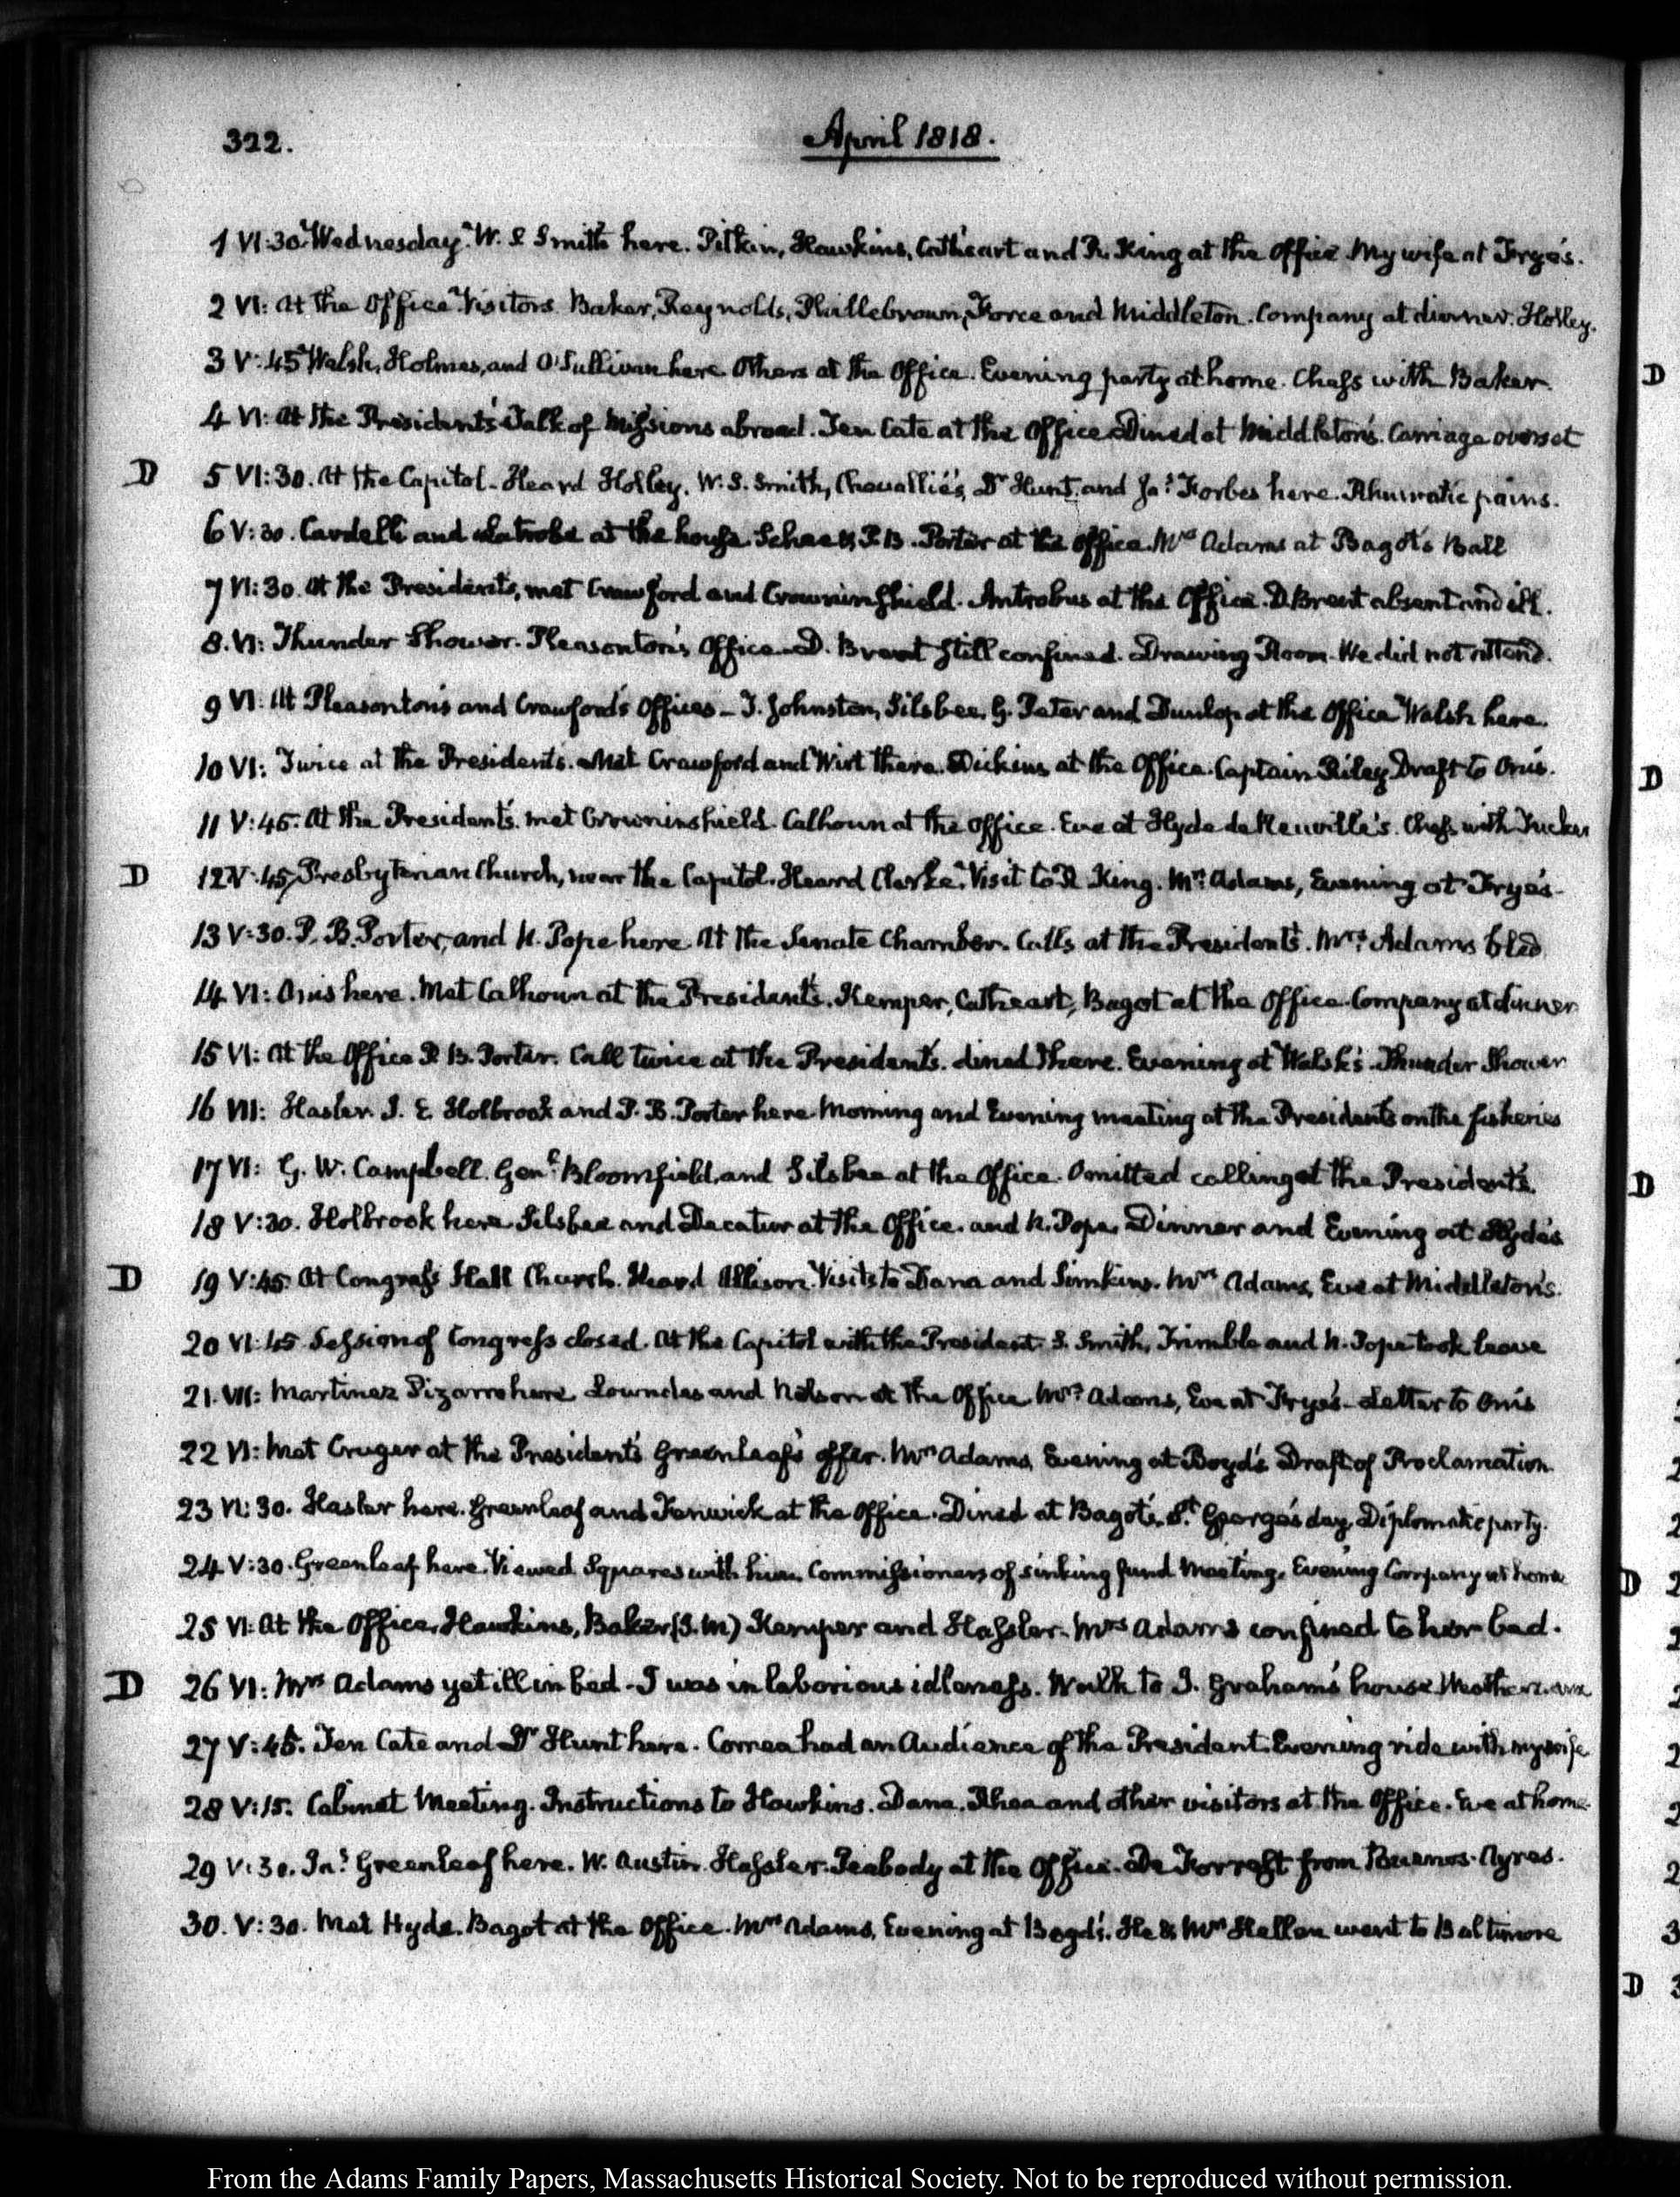 322.
April 1818.
1 VI:30. Wednesday. W. S Smith here. Pitkin, Hawkins, Cathcart and R. King at the Office. My wife at Frye's.
2 VI: At the Office. Visitors Baker, Reynolds, Force and Middleton. Company at dinner. Holley.
3 V:45 Walsh, Holmes, and O'Sullivan here. Others at the Office. Evening party at home. Chess with Baker.
4 VI: At the President's. Talk of Missions abroad. Ten Cate at the Office. Dined at Middleton's. Carriage overset
D 5 VI:30. At the Capitol. Heard Holley. W. S. Smith, Chevallié's, Dr Hunt, and Jas. Forbes here. Rhumatic pains.
6 V:30. Cardelli and Latrobe at the house. P. B. Porter at the Office. Mrs Adams at Bagot's Ball
7 VI:30. At the President's, met Crawford and Crowninshield. Antrobus at the Office. D. Brent absent and ill.
8. VI: Thunder Shower. Pleasonton's Office. D. Brent still confined. Drawing Room. We did not attend.
D
9 VI: At Pleasonton's and Crawford's Offices – J. Johnston, Silsbee, G. Peter and Dunlop at the Office. Walsh here.
10 VI: Twice at the President's. Met Crawford and Wirt there. Dickins at the Office. Captain Riley. Draft to Onis.
D
11 V:45. At the President's. met Crowninshield. Calhoun at the Office. Eve at Hyde de Neuville's. Chess with Tucker
D 12 V:45. Presbyterian Church, near the Capitol. Heard Clarke. Visit to R King. Mrs. Adams, Evening at Frye's.
13 V:30. P. B. Porter, and N. Pope here. At the Senate Chamber. Calls at the President's. Mrs. Adams bled.
14 VI: Onis here. Met Calhoun at the President's. Kemper, Cathcart, Bagot at the Office. Company at dinner
15 VI: At the Office P. B. Porter. Call twice at the President's. dined there. Evening at Walsh's. Thunder Shower
16 VII: Hasler. J. E. Holbrook and P. B. Porter here. Morning and Evening meeting at the President's on the fisheries
17 VI: G. W. Campbell. Genl. Bloomfield, and Silsbee at the Office. Omitted calling at the President's.
D
18 V:30. Holbrook here. Silsbee and Decatur at the Office. and N. Pope. Dinner and Evening at Hyde's
D 19 V:45. At Congress Hall Church. Heard Allison. Visits to Dana and Simkins. Mrs Adams, Eve at Middleton's.
20 VI:45 Session of Congress closed. At the Capitol with the President. S. Smith, Trimble and N. Pope took leave
21. VII: Martinez Pizarro here. Lowndes and Nelson at the Office. Mrs. Adams, Eve at Frye's – Letter to Onis
22 VI: Met Cruger at the President's. Greenleaf's offer. Mrs Adams, Evening at Boyd's. Draft of Proclamation.
23 VI:30. Hasler here. Greenleaf and Fenwick at the Office. Dined at Bagot's. St. George's day. Diplomatic party.
24 V:30. Greenleaf here. Viewed Squares with him. Commissioners of sinking fund Meeting. Evening Company at home
D
25 VI: At the Office, Hawkins, Baker (J. M) Kemper and Hassler. Mrs Adams confined to her bed.
D 26 VI: Mrs Adams yet ill in bed – I was in laborious idleness. Walk to J. Graham's house.
27 V:45. Ten Cate and Dr Hunt here. Correa had an Audience of the President. Evening ride with my wife
28 V:15. Cabinet Meeting. Instructions to Hawkins. Dana, Rhea and other visitors at the Office. Eve at home.
29 V:30. Jas. Greenleaf here. W. Austin. Hassler. Peabody at the Office. De Forrest from Buenos-Ayres.
30. V:30. Met Hyde. Bagot at the Office. Mrs Adams, Evening at Boyd's. He & Mrs Hellen went to Baltimore
D
From the Adams Family Papers, Massachusetts Historical Society. Not to be reproduced without permission.